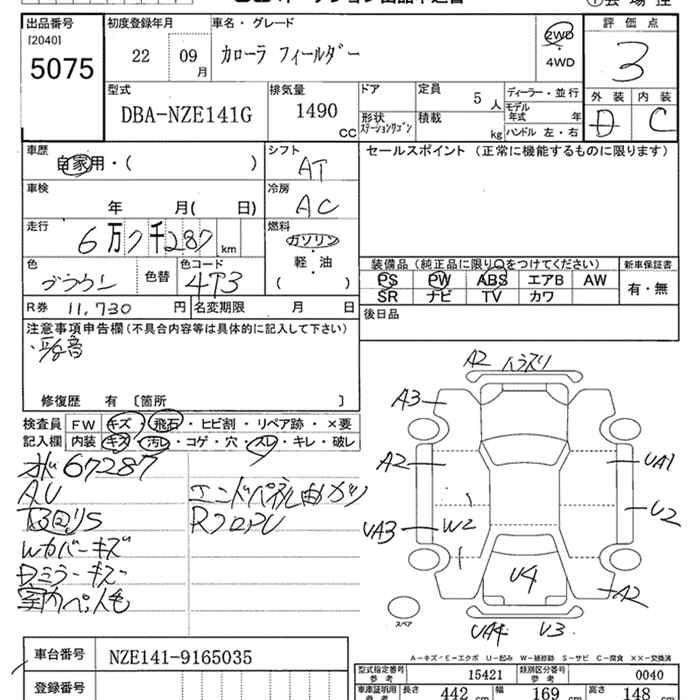 出品番号 初度登録年月 車名・グレード 評価点
[2040]
5075 22 09月 カローラ フィールダー 2WD・4WD 3
型式 排気量 ドア 定員 5人 ディーラー・並行 外装 内装
DBA-NZE141G 1490 CC 形状 ステーションワゴン 積載 kg モデル年式 年 D C
ハンドル 左・右
車歴 自家用・( ) シフト AT セールスポイント (正常に機能するものに限ります)
車検 年 月( 日) 冷房 AC
走行 6万7千287km 燃料 ガソリン・軽・油 ( )
色 ブラウン 色替 色コード 4T3
装備品 (純正品に限り○をつけてください) 新車保証書
PS PW ABS エアB AW 有・無
SR ナビ TV カワ
R券 11,730円 名変期限 月 日 後日品
注意事項申告欄(不具合内容等は具体的に記入して下さい)
修復歴 有 〔箇所 〕
検査員記入欄 FW キズ・飛石・ヒビ割・リペア跡・×要
内装 キズ・汚レ・コゲ・穴・スレ・キレ・破レ
67287
AU
エンドパネル曲ガリ
Wカバーキズ
Dミラーキズ
A2 ハラスリ
A3
A2 UA1
UA3 W2 U2
U4 A2
UA4 U3
スペア
A－キズ・E－エクボ U－凹み W－補修跡 S－サビ C－腐食 ××－交換済
車台番号 NZE141-9165035
型式指定番号 参考 15421 類別区分番号 参考 0040
登録番号 車庫証明用 参考 長さ 442 cm 幅 169 cm 高さ 148 cm